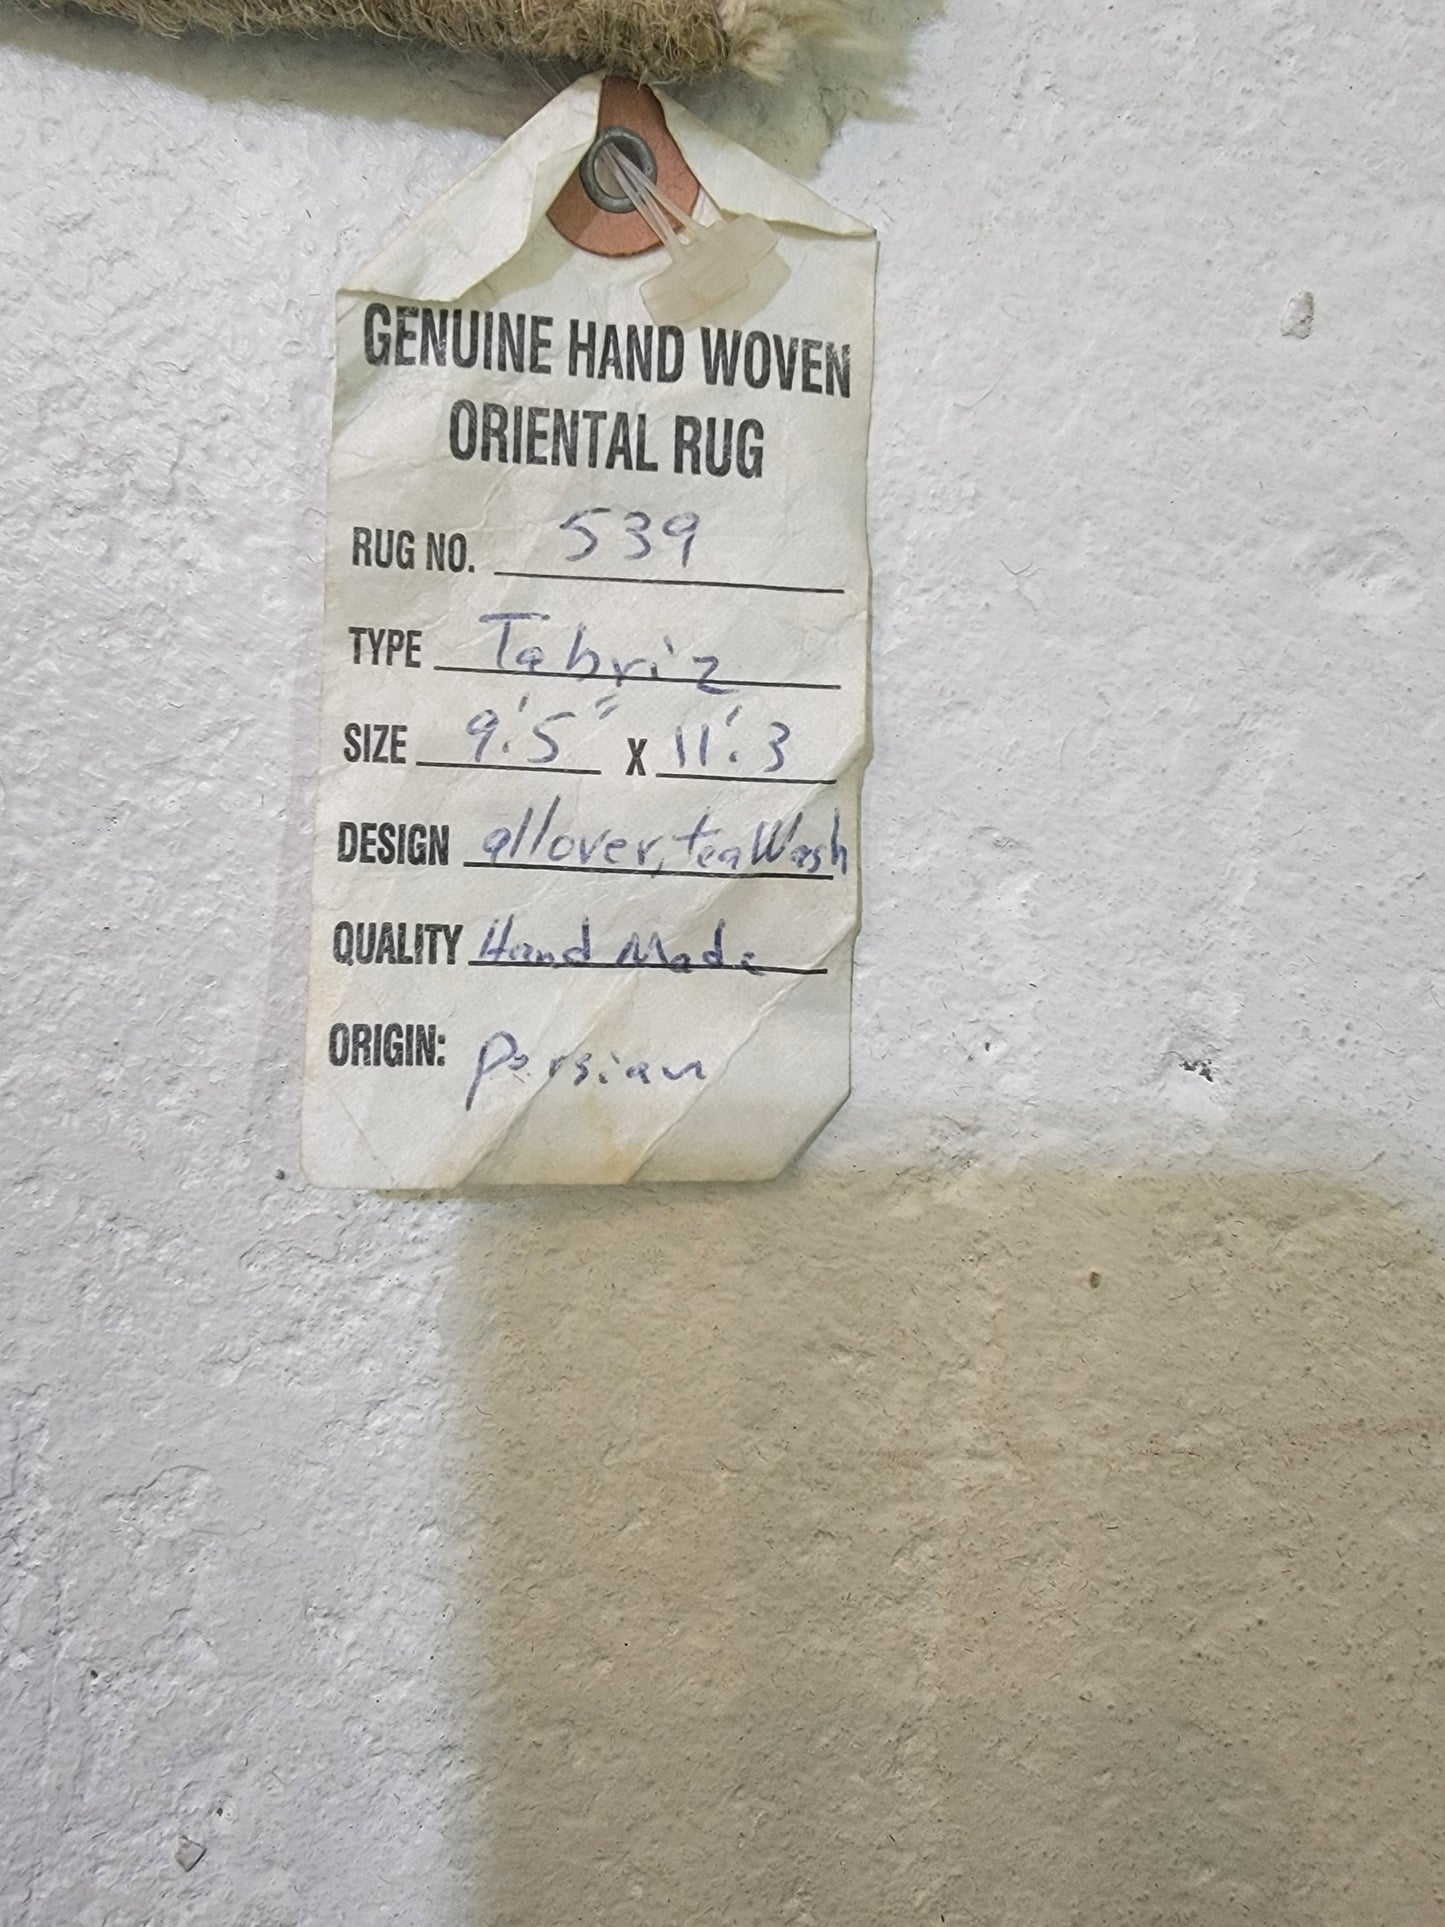 GENUINE HAND WOVEN
ORIENTAL RUG
RUG NO. 539
TYPE Tabriz
SIZE 9'.5" X 11'.3
DESIGN allover, tea Wash
QUALITY Hand Made
ORIGIN: Persian